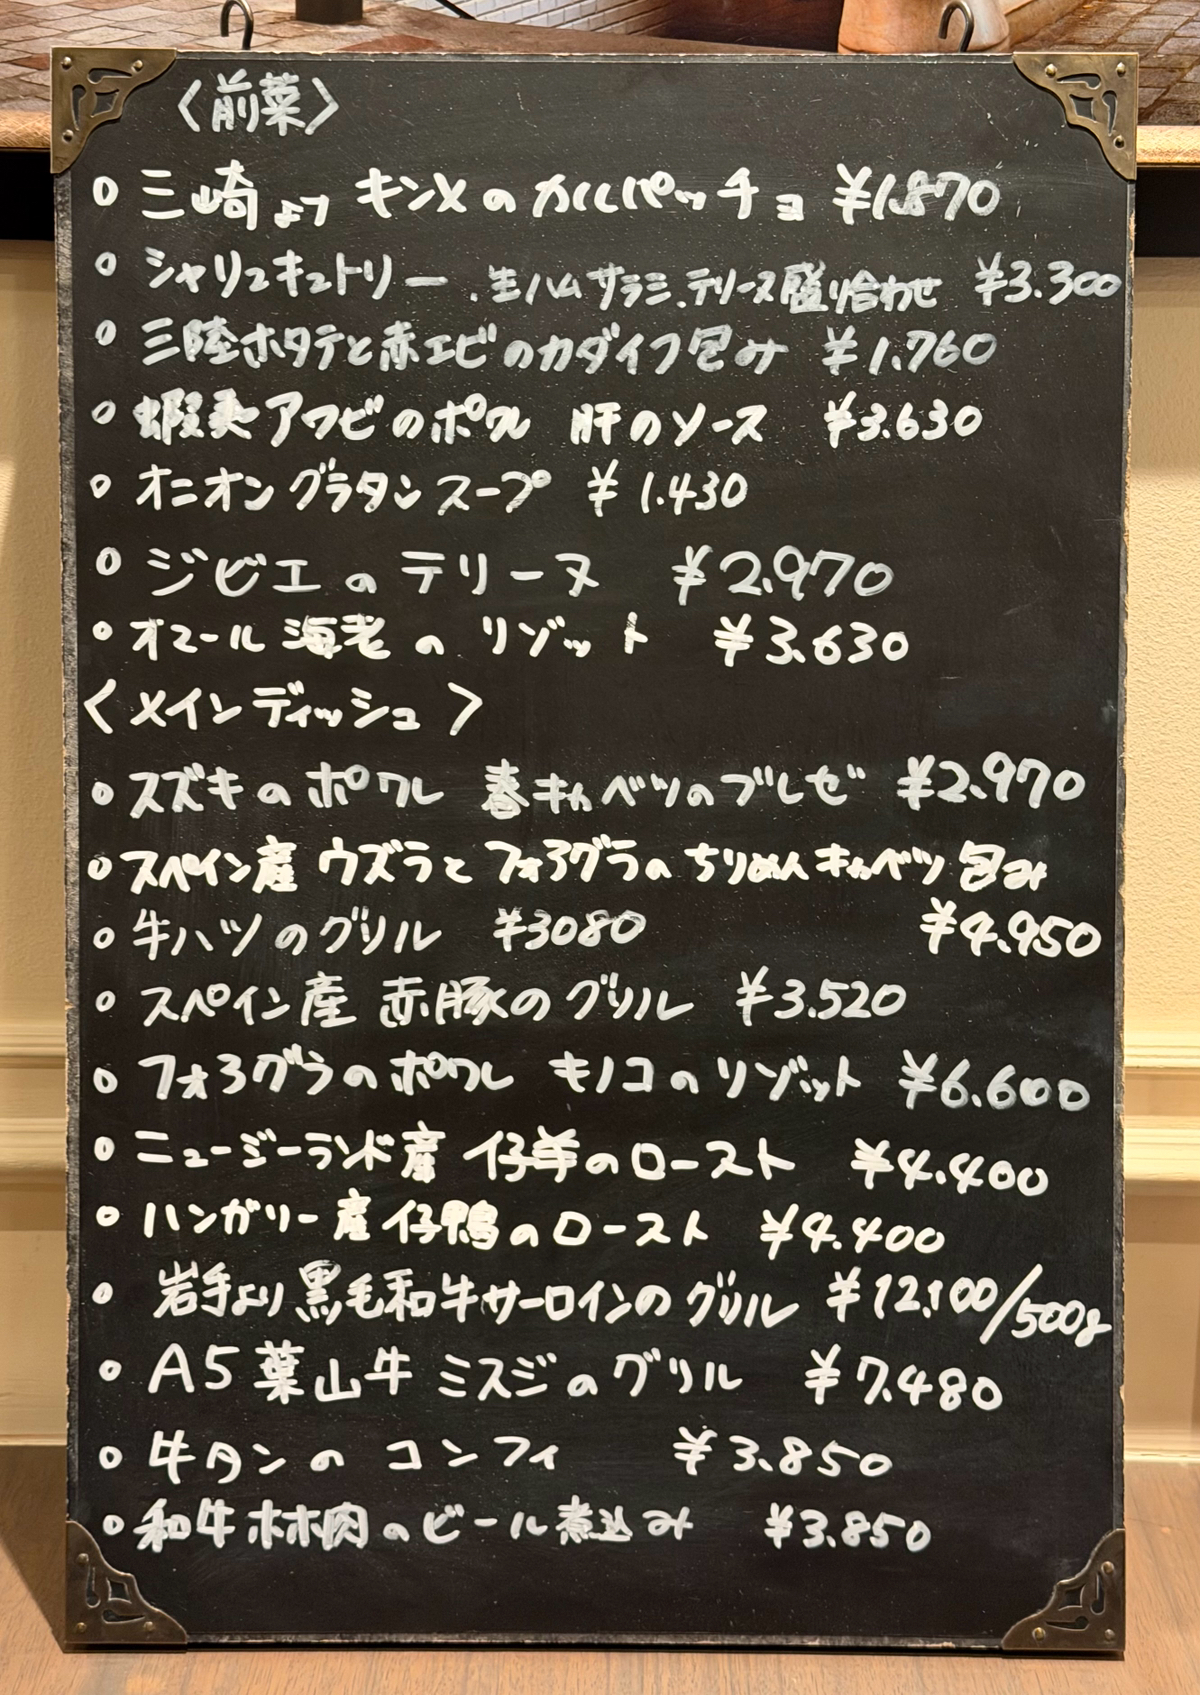 〈前菜〉
○三崎より キンメのカルパッチョ ¥1.870
○シャリュキュトリー、生ハムサラミ、テリーヌ盛り合わせ ¥3.300
○三陸ホタテと赤エビのカダイフ包み ¥1.760
○蝦夷アワビのポワレ 肝のソース ¥3.630
○オニオングラタンスープ ¥1.430
○ジビエのテリーヌ ¥2.970
○オマール海老のリゾット ¥3.630
〈メインディッシュ〉
○スズキのポワレ 春キャベツのブレゼ ¥2.970
○スペイン産 ウズラとフォアグラのちりめんキャベツ包み
¥4.950
○牛ハツのグリル ¥3080
○スペイン産 赤豚のグリル ¥3.520
○フォアグラのポワレ キノコのリゾット ¥6.600
○ニュージーランド産 仔羊のロースト ¥4.400
○ハンガリー産仔鴨のロースト ¥4.400
○岩手より黒毛和牛サーロインのグリル ¥12.100/500g
○A5葉山牛 ミスジのグリル ¥7.480
○牛タンのコンフィ ¥3.850
○和牛ホホ肉のビール煮込み ¥3.850